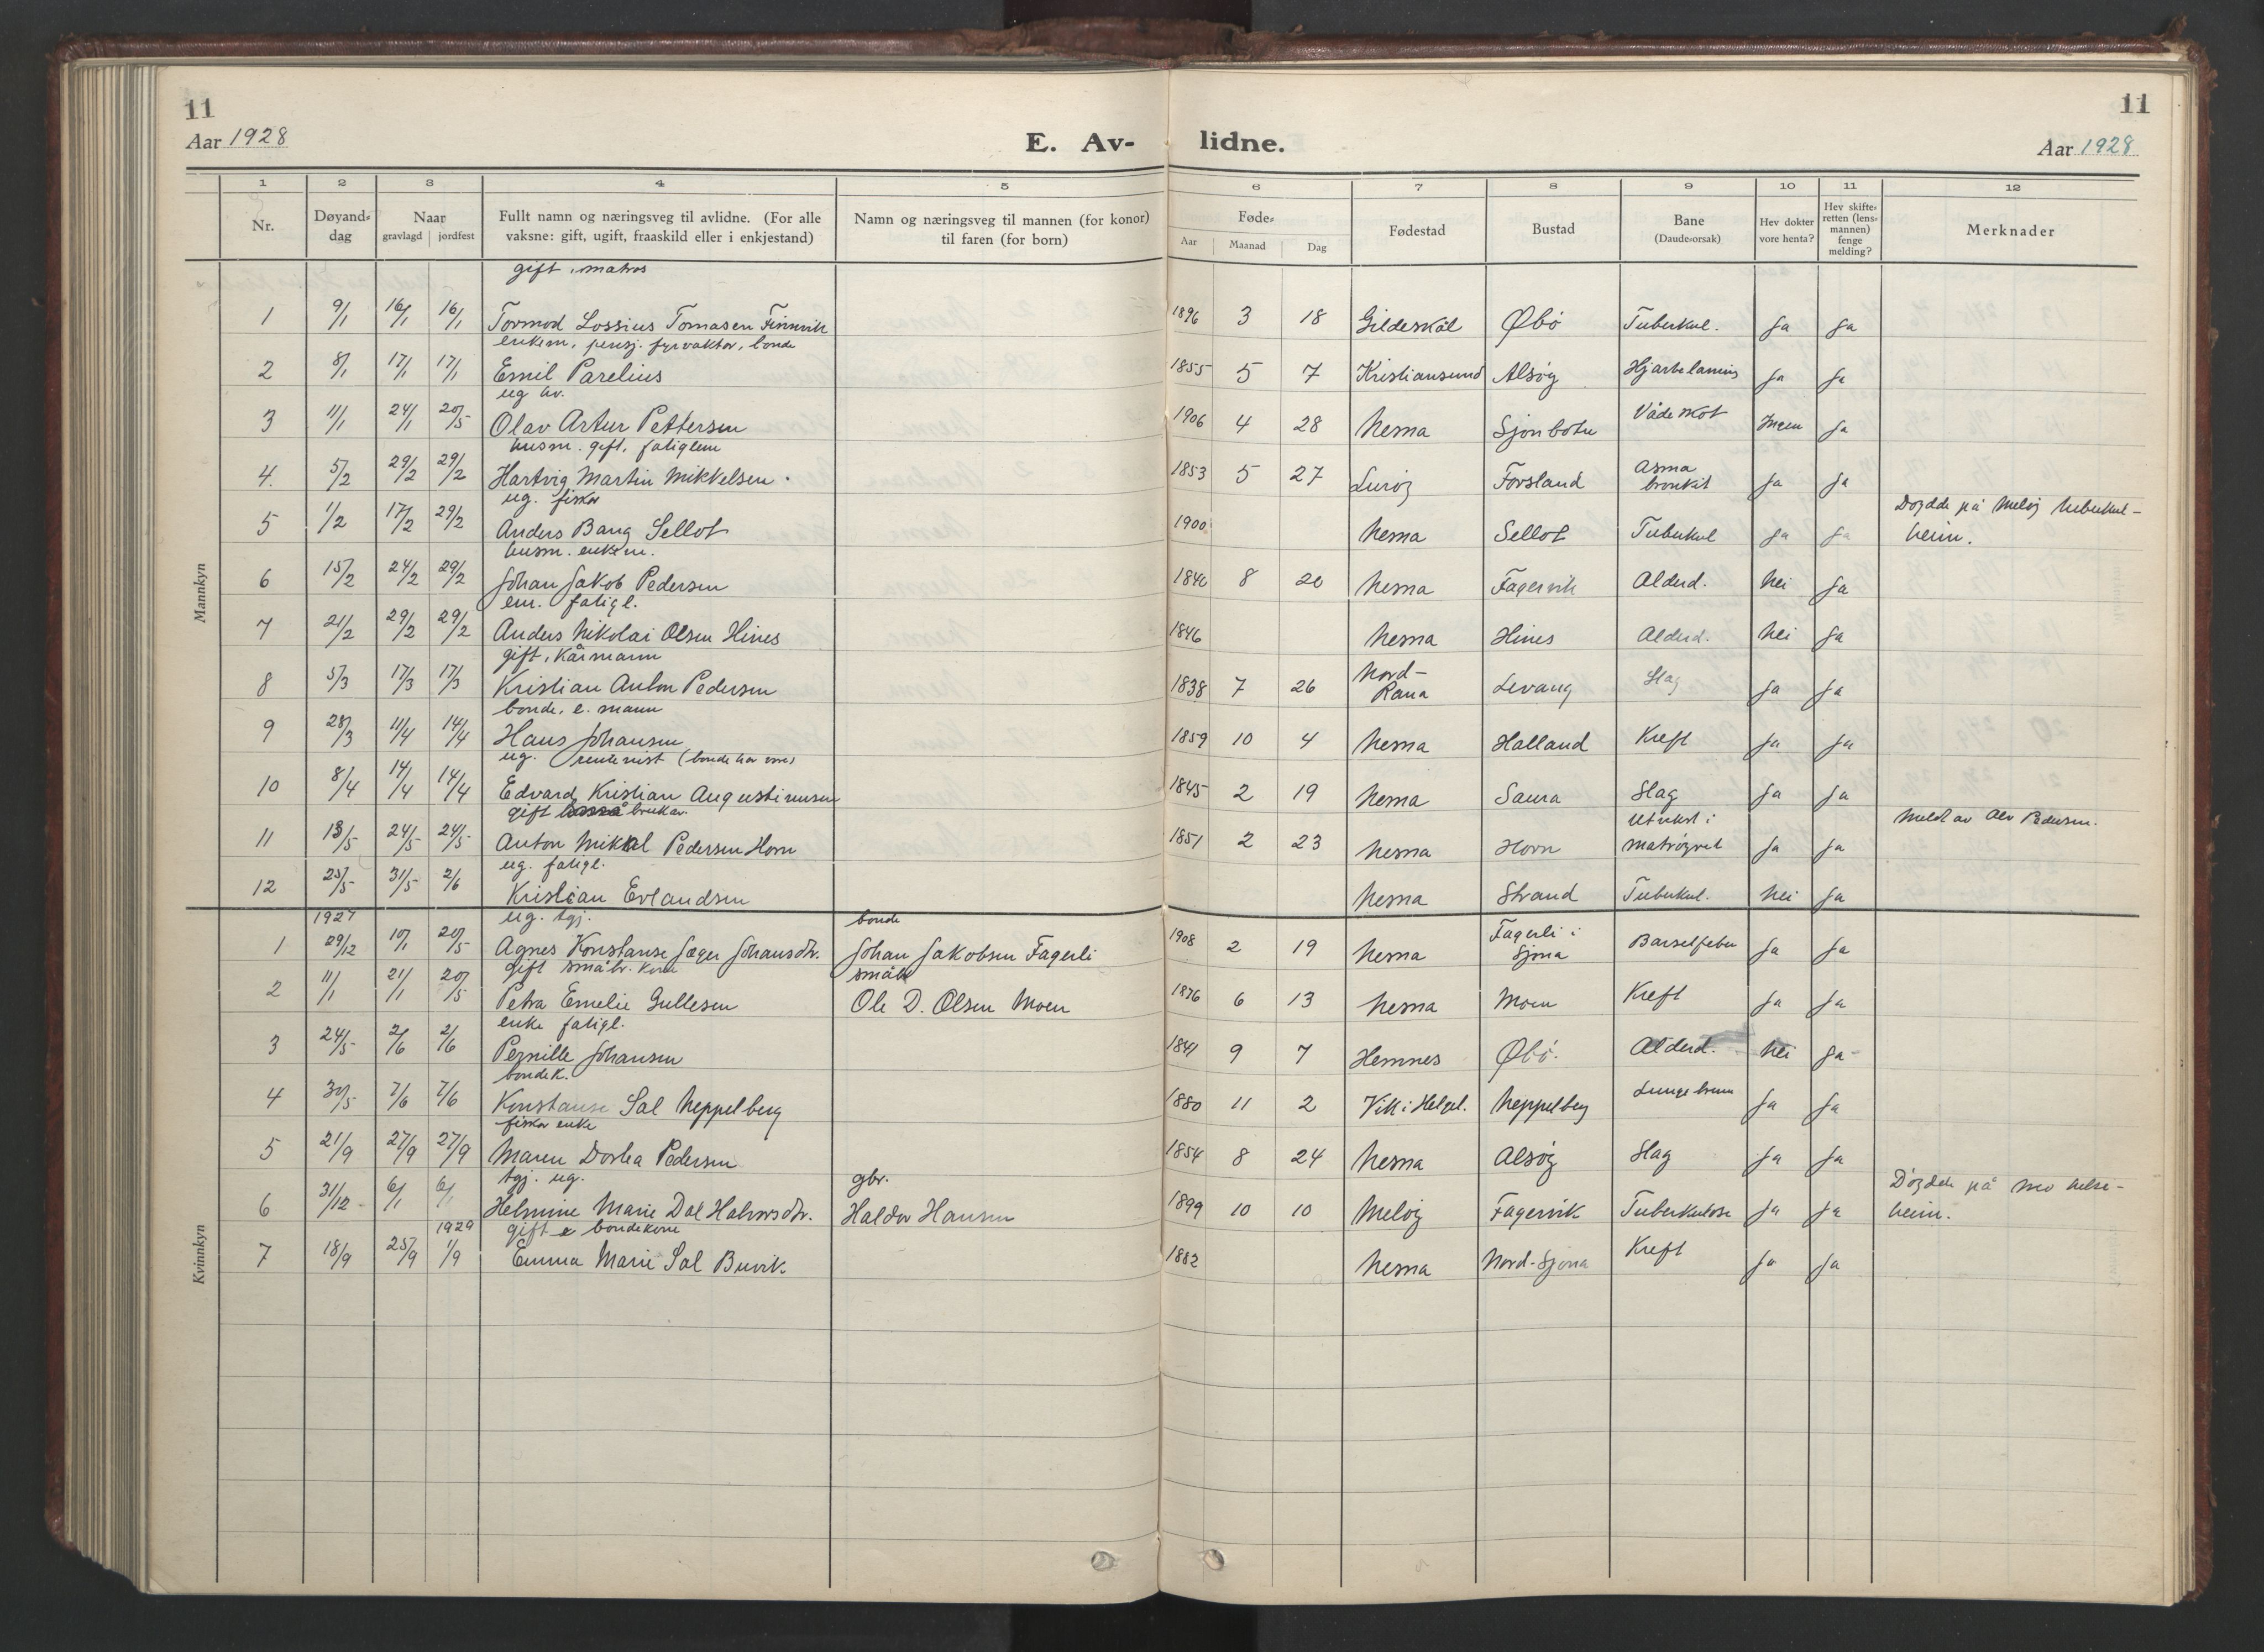 11
11
Aar 1928
E. Av-
lidne.
Aar 1928
1 2 3 4 5 6 7 8 9 10 11 12
Nr.
Døyand-
dag
Naar
gravlagd jordfest
Fullt namn og næringsveg til avlidne. (For alle
vaksne: gift, ugift, fraaskild eller i enkjestand)
Namn og næringsveg til mannen (for konor)
til faren (for born)
Føde-
Aar Maanad Dag
Fødestad
Bustad
Bane
(Daude-orsak)
Hev dokter
vore henta?
Hev skifte-
retten (lens-
mannen)
fenge
melding?
Merknader
Mannkyn
gift, matros
1 9/1 16/1 16/1 Tormod Lossius Tomasen Finnvik 1896 3 18 Gildeskål Øbö Tuberkul. Ja Ja
enkem, pensj. fyrvaktar, bonde
2 8/1 17/1 17/1 Emil Parelius 1855 5 7 Kristiansund Alsöy Hjartelamis Ja Ja
ug av.
3 11/1 24/1 20/5 Olav Artur Pettersen 1906 4 28 Nesna Sjonbotn Vådeskot Ingen Ja
husm. gift, fatiglem
4. 5/2 29/2 29/2 Hartvig Martin Mikkelsen. 1853 5 27 Luröy Forsland Asma
bronkit Ja Ja
ug. fisker
5 1/2 17/2 29/2 Anders Bang Sellot 1900 Nesna Sellot Tuberkul Ja Ja Döydde på Melöy tuberkul-
heim.
husm. enkem.
6 15/2 24/2 29/2 Johan Jakob Pedersen 1840 8 20 Nesna Fagervik Alderd. Nei Ja
em. fatigl.
7 21/2 29/2 29/2 Anders Nikolai Olsen Hines 1846 Nesna Hines Alderd. Nei Ja
gift, Kårmann
8 5/3 17/3 17/3 Kristian Anton Pedersen 1838 7 26 Nord-
Rana Levang Slag Ja Ja
bonde, e. mann
9 28/3 11/4 14/4 Hans Johansen 1859 10 4 Nesna Halland Kreft Ja Ja
ug. rentenist (bonde har vore)
10 8/4 14/4 14/4 Edvard Kristian Augustinusen 1845 2 19 Nesna Saura Slag Ja Ja
gift brukar.
11 13/5 24/5 24/5 Anton Mikkal Pedersen Horn 1851 2 23 Nesna Horn Utvekst i
matröyret Ja Ja Meldt av Alv Pedersen.
ug. fatigl.
12 25/5 31/5 2/6 Kristian Erlandsen Nesna Strand Tuberkul. Nei Ja
Kvinnkyn
1927 ug. tgj. bonde
1 29/12 10/1 20/5 Agnes Konstanse Jæger Johansdtr. Johan Jakobsen Fagerli 1908 2 19 Nesna Fagerli i
Sjona Barselfeber Ja Ja
gift småbr. kone småbr
2 11/1 21/1 20/5 Petra Emelie Gullesen Ole D. Olsen Moen 1876 6 13 Nesna Moen Kreft Ja Ja
enke fatigl.
3 24/5 2/6 2/6 Pernille Johansen 1841 9 7 Hemnes Øbö. Alderd. Nei Ja
bondek.
4 30/5 7/6 7/6 Konstanse Sal Neppelberg 1880 11 2 Vik i Helgel. Neppelberg Lungebrenn Ja Ja
fisker enke
5 21/9 27/9 27/9 Maren Dortea Pedersen 1854 8 24 Nesna Alsöy Slag Ja Ja
tgj. ug. gbr.
6 31/12 6/1 6/1 Helmine Marie Dal Halvorsdtr. Haldor Hansen 1899 10 10 Melöy Fagervik Tuberkulose Ja Ja Döydde på Mo helse-
heim.
1929 gift e bondekone
7 18/9 25/9 1/9 Emma Marie Sal Buvik 1882 Nesna Nord-Sjona Kreft Ja Ja